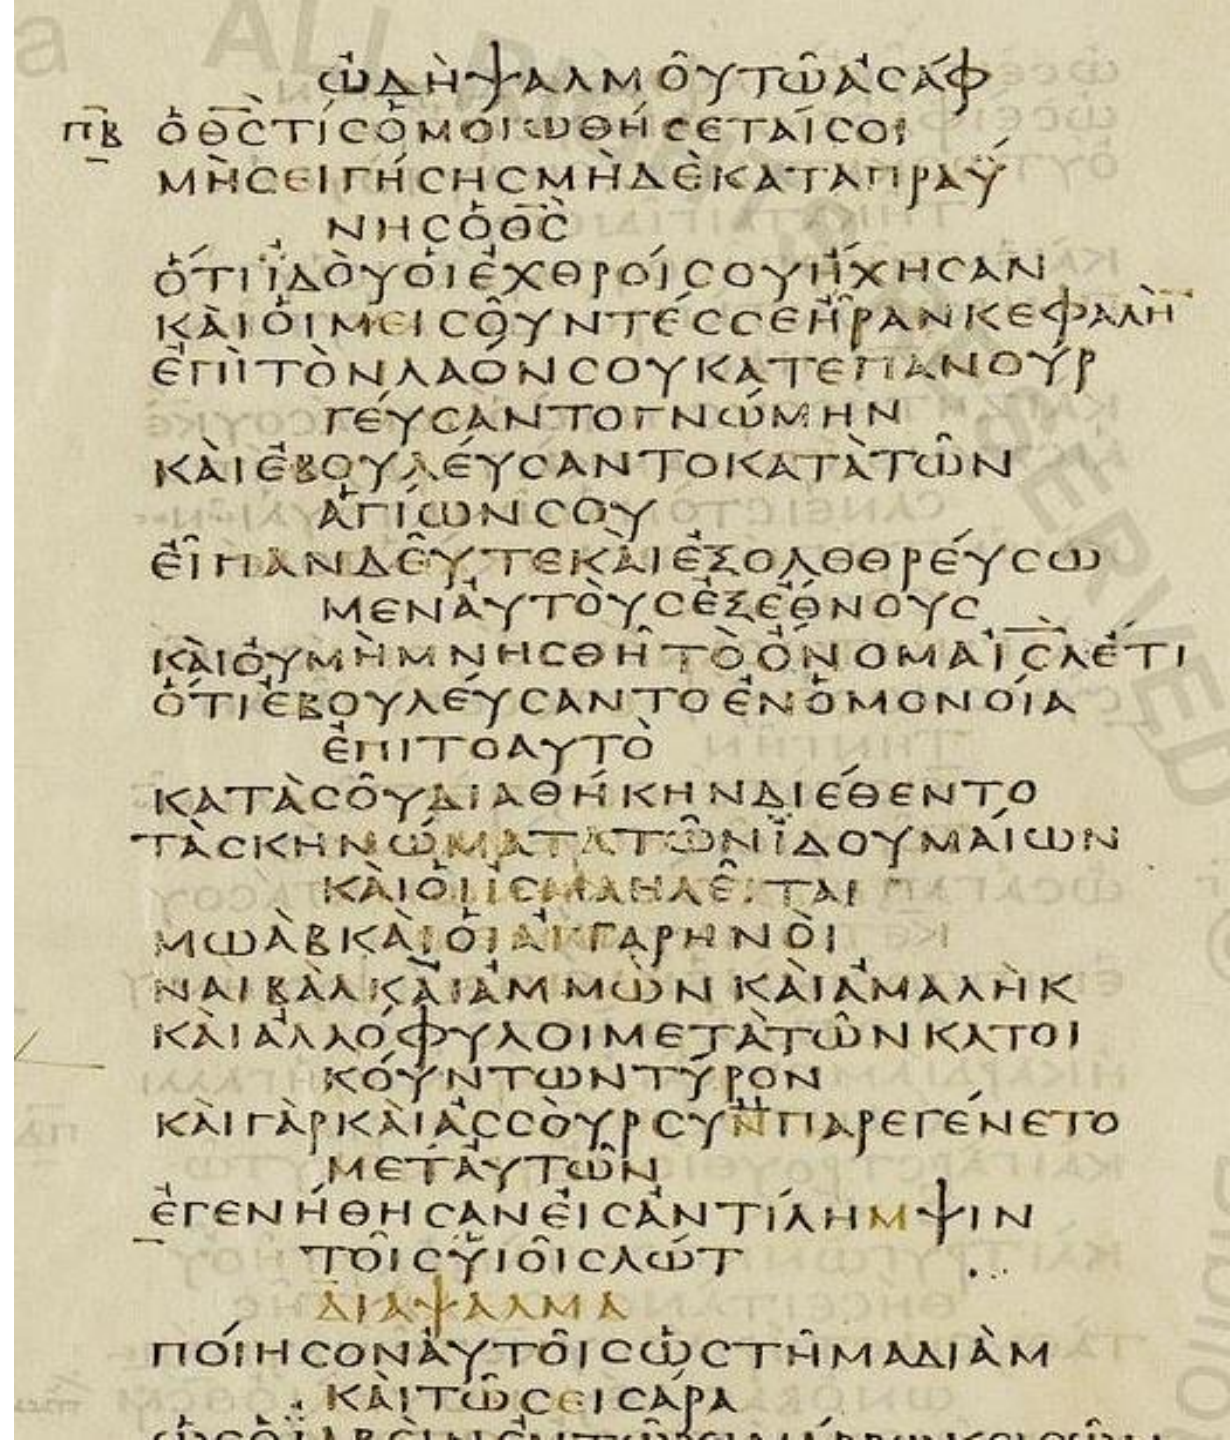 ὠδὴψαλμοῦτῶἀσάφ
π̅β̅ ὁθ̅ς̅τίςὁμοιωθήσεταίσοι
μὴσειγήσηςμὴδὲκαταπραΰ
νηςὁθ̅ς̅
ὅτιϊδοὺοἱἐχθροίσουἤχησαν
καὶοἱμεισοῦντέςσεἦρανκεφαλὴ̅
ἐπὶτὸνλαόνσουκατεπανουρ
γεύσαντογνώμην
καὶἐβουλεύσαντοκατὰτῶν
ἁγίωνσου
εἶπανδεῦτεκαὶἐξολθθρεύσω
μεναὐτοὺςἐξἔθνους
καὶοὐμὴμνησθῆτὸὄνομαἰς̅λ̅ἔτι
ὅτιἐβουλεύσαντοἐνὁμονοία
ἐπιτοαυτὸ
κατὰσοῦδιαθήκηνδιέθεντο
τὰσκηνώματατῶνϊδουμαίων
καὶοἱϊσμαηλεῖται
μωὰβκαὶοἱἀγγαρηνοὶ
ναιβὰλκαὶἀμμὼνκαὶἀμαλὴκ
καὶἀλλόφυλοιμετὰτῶνκατοι
κούντωντύρον
καὶγὰρκαὶἀσσοὺρσυνπαρεγένετο
μετ'αὐτῶν
ἐγενήθησανεἰςἀντίλημψιν
τοῖςυἱοῖςλώτ
διάψαλμα
ποίησοναὐτοῖςὡςτῆμαδιὰμ
καὶτῶσεισάρα